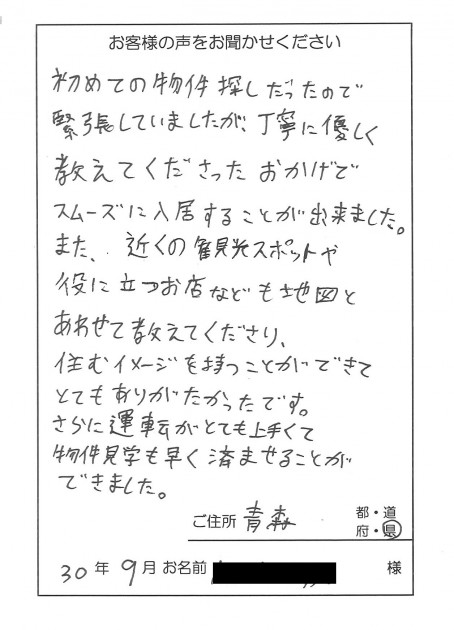 お客様の声をお聞かせください
初めての物件探しだったので
緊張していましたが、丁寧に優しく
教えてくださったおかげで
スムーズに入居することが出来ました。
また、近くの観光スポットや
役に立つお店なども地図と
あわせて教えてくださり、
住むイメージを持つことができて
とてもありがたかったです。
さらに運転がとても上手くて
物件見学も早く済ませることが
できました。
ご住所 青森 都・道
府・県
30年 9月 お名前 様